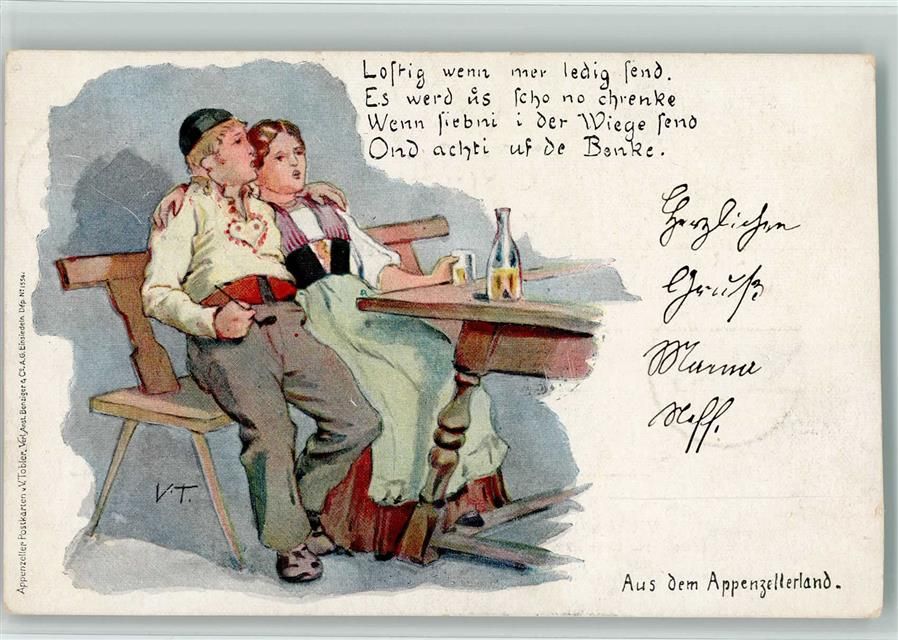 Loſtig wenn mer ledig ſend.
Es werd ůs ſcho no chrenke
Wenn ſiebni i der Wiege ſend
Ond achti uf de Banke.
Herzlichen
Gruß
Neff.
V.T.
Aus dem Appenzellerland.
Appenzeller Postkarten v. V. Tobler, Verl. Anst. Benziger & Co. A.G. Einsiedeln. Dép. No 1554.